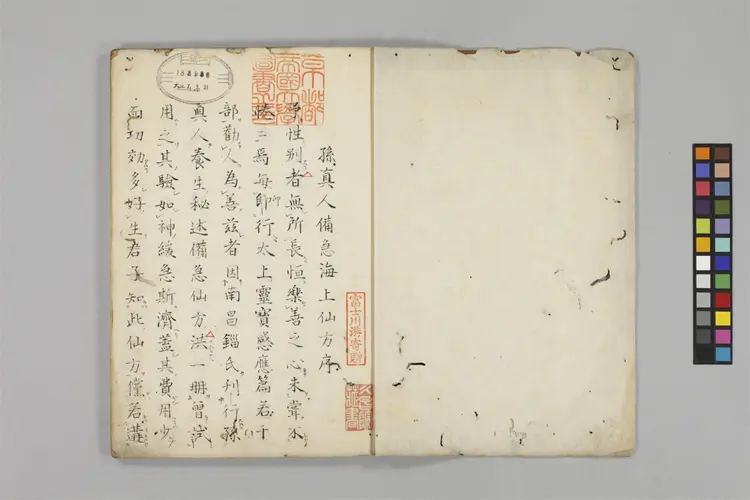 孫真人備急海上仙方序
性別者無所長恒樂善之心未嘗不
三焉每即行太上靈寶感應篇若干
部勸人為善茲者因南昌鍿氏刋行孫
真人養生秘述備急仙方洪一册曾試
用之其驗如神緩急斯濟蓋其費用少
而功効多好生君子知此仙方僅若
富士川游寄贈
京都帝國大學圖書之印